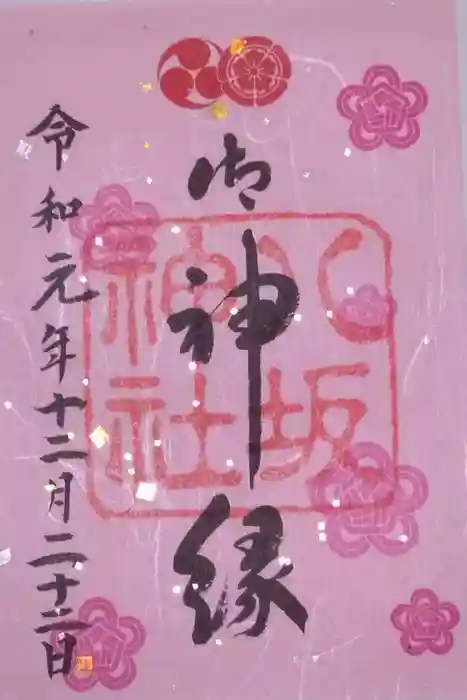 御神縁
八坂神社
令和元年十二月二十二日